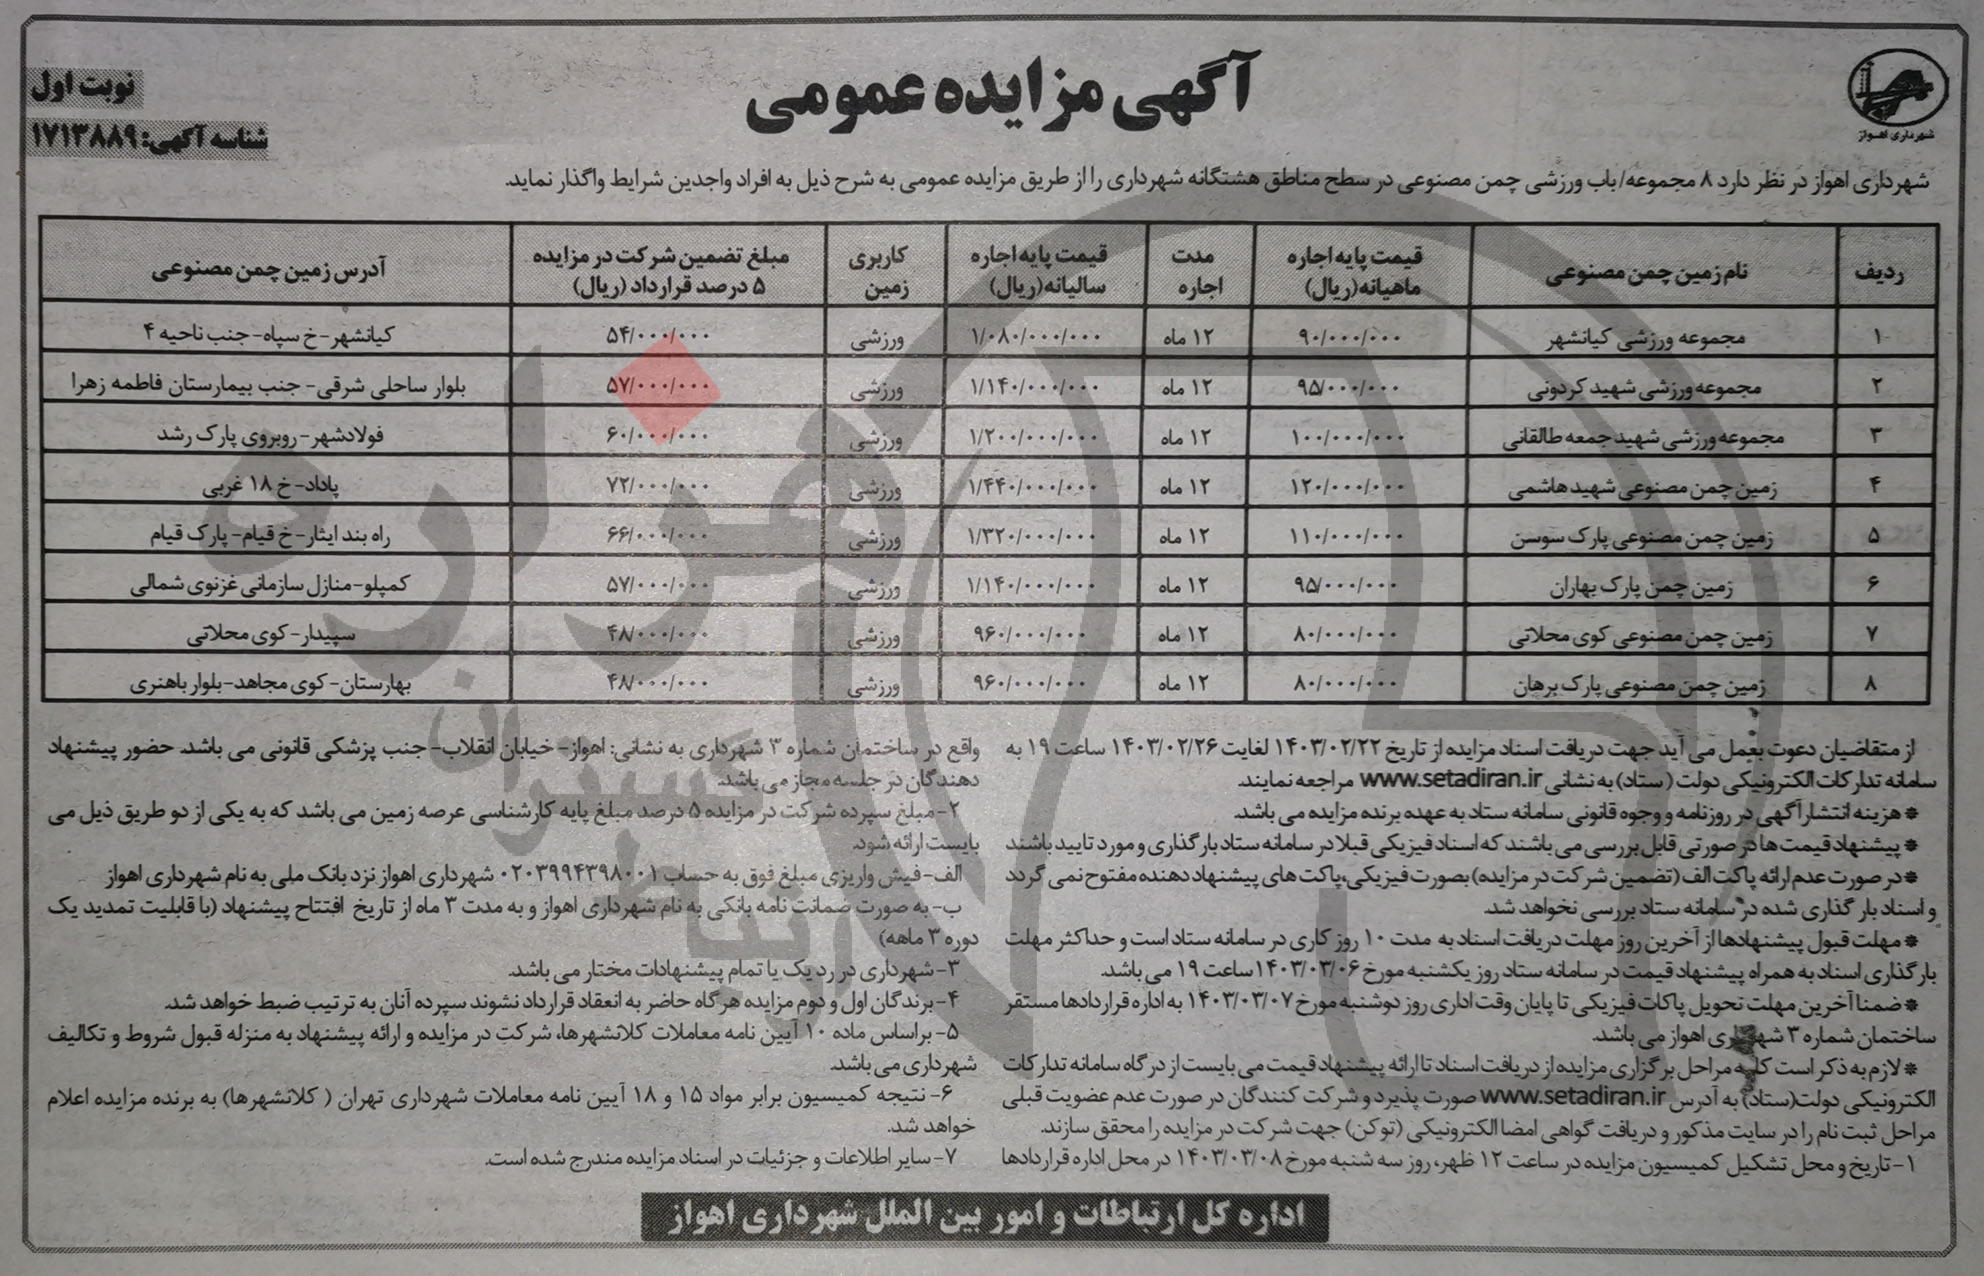 شهرداری اهواز
آگهی مزایده عمومی
نوبت اول
شناسه آگهی: ۱۷۱۳۸۸۹
شهرداری اهواز در نظر دارد ۸ مجموعه/باب ورزشی چمن مصنوعی در سطح مناطق هشتگانه شهرداری را از طریق مزایده عمومی به شرح ذیل به افراد واجدین شرایط واگذار نماید.
ردیف | نام زمین چمن مصنوعی | قیمت پایه اجاره ماهیانه(ریال) | مدت اجاره | قیمت پایه اجاره سالیانه(ریال) | کاربری زمین | مبلغ تضمین شرکت در مزایده ۵ درصد قرارداد (ریال) | آدرس زمین چمن مصنوعی
۱ | مجموعه ورزشی کیانشهر | ۹۰/۰۰۰/۰۰۰ | ۱۲ ماه | ۱/۰۸۰/۰۰۰/۰۰۰ | ورزشی | ۵۴/۰۰۰/۰۰۰ | کیانشهر-خ سپاه-جنب ناحیه ۴
۲ | مجموعه ورزشی شهید کردونی | ۹۵/۰۰۰/۰۰۰ | ۱۲ ماه | ۱/۱۴۰/۰۰۰/۰۰۰ | ورزشی | ۵۷/۰۰۰/۰۰۰ | بلوار ساحلی شرقی- جنب بیمارستان فاطمه زهرا
۳ | مجموعه ورزشی شهید جمعه طالقانی | ۱۰۰/۰۰۰/۰۰۰ | ۱۲ ماه | ۱/۲۰۰/۰۰۰/۰۰۰ | ورزشی | ۶۰/۰۰۰/۰۰۰ | فولادشهر-روبروی پارک رشد
۴ | زمین چمن مصنوعی شهید هاشمی | ۱۲۰/۰۰۰/۰۰۰ | ۱۲ ماه | ۱/۴۴۰/۰۰۰/۰۰۰ | ورزشی | ۷۲/۰۰۰/۰۰۰ | پاداد-خ ۱۸ غربی
۵ | زمین چمن مصنوعی پارک سوسن | ۱۱۰/۰۰۰/۰۰۰ | ۱۲ ماه | ۱/۳۲۰/۰۰۰/۰۰۰ | ورزشی | ۶۶/۰۰۰/۰۰۰ | راه بند ایثار-خ قیام- پارک قیام
۶ | زمین چمن پارک بهاران | ۹۵/۰۰۰/۰۰۰ | ۱۲ ماه | ۱/۱۴۰/۰۰۰/۰۰۰ | ورزشی | ۵۷/۰۰۰/۰۰۰ | کمپلو-منازل سازمانی غزنوی شمالی
۷ | زمین چمن مصنوعی کوی محلاتی | ۸۰/۰۰۰/۰۰۰ | ۱۲ ماه | ۹۶۰/۰۰۰/۰۰۰ | ورزشی | ۴۸/۰۰۰/۰۰۰ | سپیدار-کوی محلاتی
۸ | زمین چمن مصنوعی پارک برهان | ۸۰/۰۰۰/۰۰۰ | ۱۲ ماه | ۹۶۰/۰۰۰/۰۰۰ | ورزشی | ۴۸/۰۰۰/۰۰۰ | بهارستان-کوی مجاهد-بلوار باهنری
از متقاضیان دعوت بعمل می آید جهت دریافت اسناد مزایده از تاریخ ۱۴۰۳/۰۲/۲۲ لغایت ۱۴۰۳/۰۲/۲۶ ساعت ۱۹ به
سامانه تدارکات الکترونیکی دولت (ستاد) به نشانی www.setadiran.ir مراجعه نمایند.
* هزینه انتشار آگهی در روزنامه و وجوه قانونی سامانه ستاد به عهده برنده مزایده می باشد.
* پیشنهاد قیمت ها در صورتی قابل بررسی می باشند که اسناد فیزیکی قبلا در سامانه ستاد بارگذاری و مورد تایید باشند
* در صورت عدم ارائه پاکت الف (تضمین شرکت در مزایده) بصورت فیزیکی،پاکت های پیشنهاد دهنده مفتوح نمی گردد
و اسناد بار گذاری شده در سامانه ستاد بررسی نخواهد شد.
* مهلت قبول پیشنهادها از آخرین روز مهلت دریافت اسناد به مدت ۱۰ روز کاری در سامانه ستاد است و حداکثر مهلت
بارگذاری اسناد به همراه پیشنهاد قیمت در سامانه ستاد روز یکشنبه مورخ ۱۴۰۳/۰۳/۰۶ ساعت ۱۹ می باشد.
* ضمنا آخرین مهلت تحویل پاکات فیزیکی تا پایان وقت اداری روز دوشنبه مورخ ۱۴۰۳/۰۳/۰۷ به اداره قراردادها مستقر
ساختمان شماره ۳ شهرداری اهواز می باشد.
* لازم به ذکر است کلیه مراحل برگزاری مزایده از دریافت اسناد تا ارائه پیشنهاد قیمت می بایست از درگاه سامانه تدارکات
الکترونیکی دولت(ستاد) به آدرس www.setadiran.ir صورت پذیرد و شرکت کنندگان در صورت عدم عضویت قبلی
مراحل ثبت نام را در سایت مذکور و دریافت گواهی امضا الکترونیکی (توکن) جهت شرکت در مزایده را محقق سازند.
۱-تاریخ و محل تشکیل کمیسیون مزایده در ساعت ۱۲ ظهر، روز سه شنبه مورخ ۱۴۰۳/۰۳/۰۸ در محل اداره قراردادها
واقع در ساختمان شماره ۳ شهرداری به نشانی: اهواز- خیابان انقلاب- جنب پزشکی قانونی می باشد. حضور پیشنهاد
دهندگان در جلسه مجاز می باشد.
۲-مبلغ سپرده شرکت در مزایده ۵ درصد مبلغ پایه کارشناسی عرصه زمین می باشد که به یکی از دو طریق ذیل می
بایست ارائه شود.
الف-فیش واریزی مبلغ فوق به حساب ۰۲۰۳۹۹۴۳۹۸۰۰۱ شهرداری اهواز نزد بانک ملی به نام شهرداری اهواز
ب- به صورت ضمانت نامه بانکی به نام شهرداری اهواز و به مدت ۳ ماه از تاریخ افتتاح پیشنهاد (با قابلیت تمدید یک
دوره ۳ ماهه)
۳-شهرداری در رد یک یا تمام پیشنهادات مختار می باشد.
۴-برندگان اول و دوم مزایده هرگاه حاضر به انعقاد قرارداد نشوند سپرده آنان به ترتیب ضبط خواهد شد.
۵-براساس ماده ۱۰ آیین نامه معاملات کلانشهرها، شرکت در مزایده و ارائه پیشنهاد به منزله قبول شروط و تکالیف
شهرداری می باشد.
۶- نتیجه کمیسیون برابر مواد ۱۵ و ۱۸ آیین نامه معاملات شهرداری تهران ( کلانشهرها) به برنده مزایده اعلام
خواهد شد.
۷-سایر اطلاعات و جزئیات در اسناد مزایده مندرج شده است.
اداره کل ارتباطات و امور بین الملل شهرداری اهواز